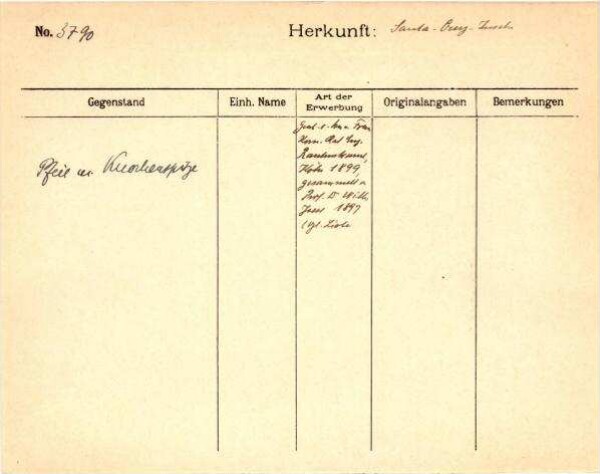 No. 3790
Herkunft: Santa-Cruz-Inseln
Gegenstand
Einh. Name
Art der
Erwerbung
Originalangaben
Bemerkungen
Pfeil m. Knochenspitze
Kom. Rat Eug.
Rautenstrauch,
Köln 1899,
gesammelt v.
Prof. Dr. Wilh.
Joest 1897